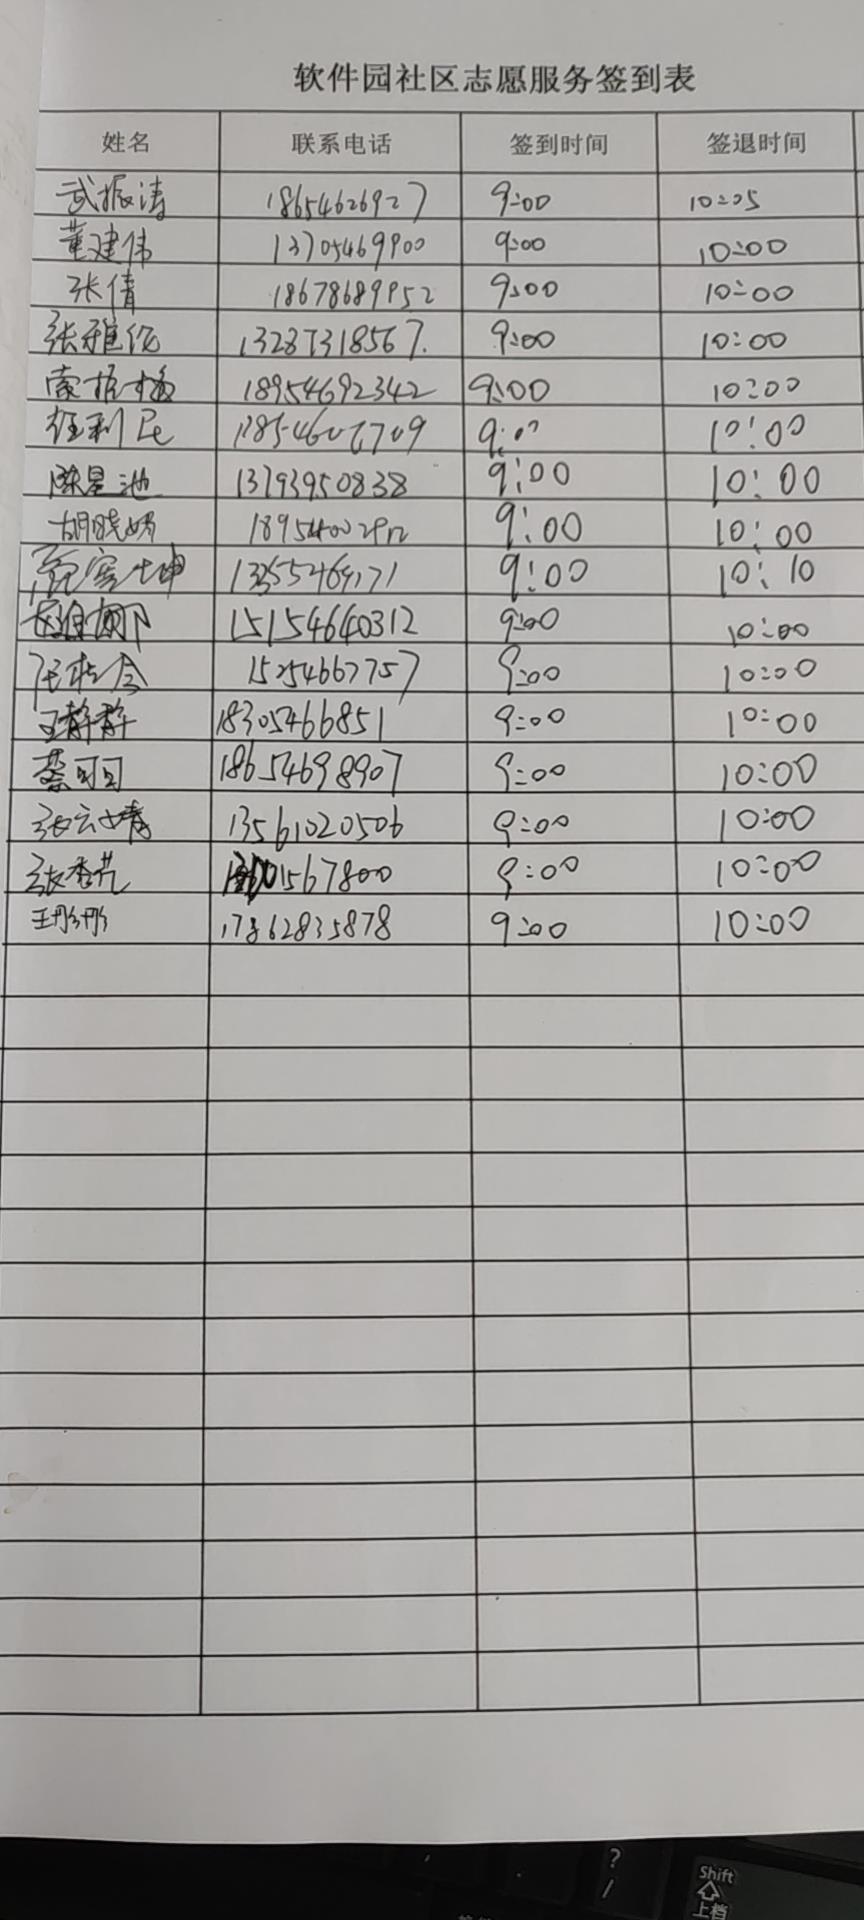 软件园社区志愿服务签到表
姓名 联系电话 签到时间 签退时间
武振涛 18654626927 9:00 10:05
董建伟 13705469900 9:00 10:00
张倩 18678689952 9:00 10:00
张雅伦 13287318567. 9:00 10:00
18954692342 9:00 10:00
任利民 9:00 10:00
陈星池 13793950838 9:00 10:00
胡晓娟 9:00 10:00
13355469171 9:00 10:10
15154640312 9:00 10:00
15254667757 9:00 10:00
王静静 18305466851 9:00 10:00
蔡可可 18654698907 9:00 10:00
张云婧 13561020506 9:00 10:00
张香芹 9:00 10:00
王彤彤 17862835878 9:00 10:00
?
/
Shift
上档